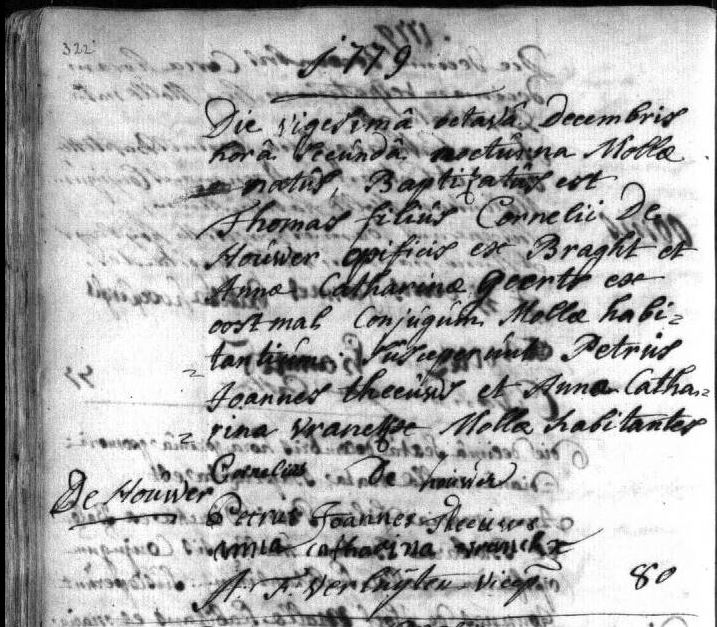 322
1779
Die vigesimâ octavâ Decembris
horâ secûndâ nocturna Mollæ
natûs, Baptizatûs est
Thomas filiûs Cornelii De
Hoûwer opificis ex Braght et
Annæ Catharinæ Geerts ex
oostmal Conjûgûm Mollæ habi=
tantiûm. Sûsceperûnt Petrûs
= Joannes theeûws et Anna Catha=
= rina vranckx Mollæ habitantes
Cornelius De houwer
De Houwer
Petrus Joannes theeuws
anna catharina vranckx
verluÿten vicep
80